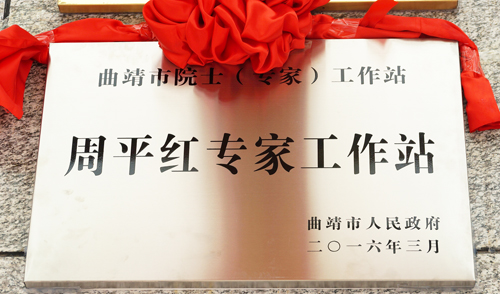 曲靖市院士（专家）工作站
周平红专家工作站
曲靖市人民政府
二〇一六年三月